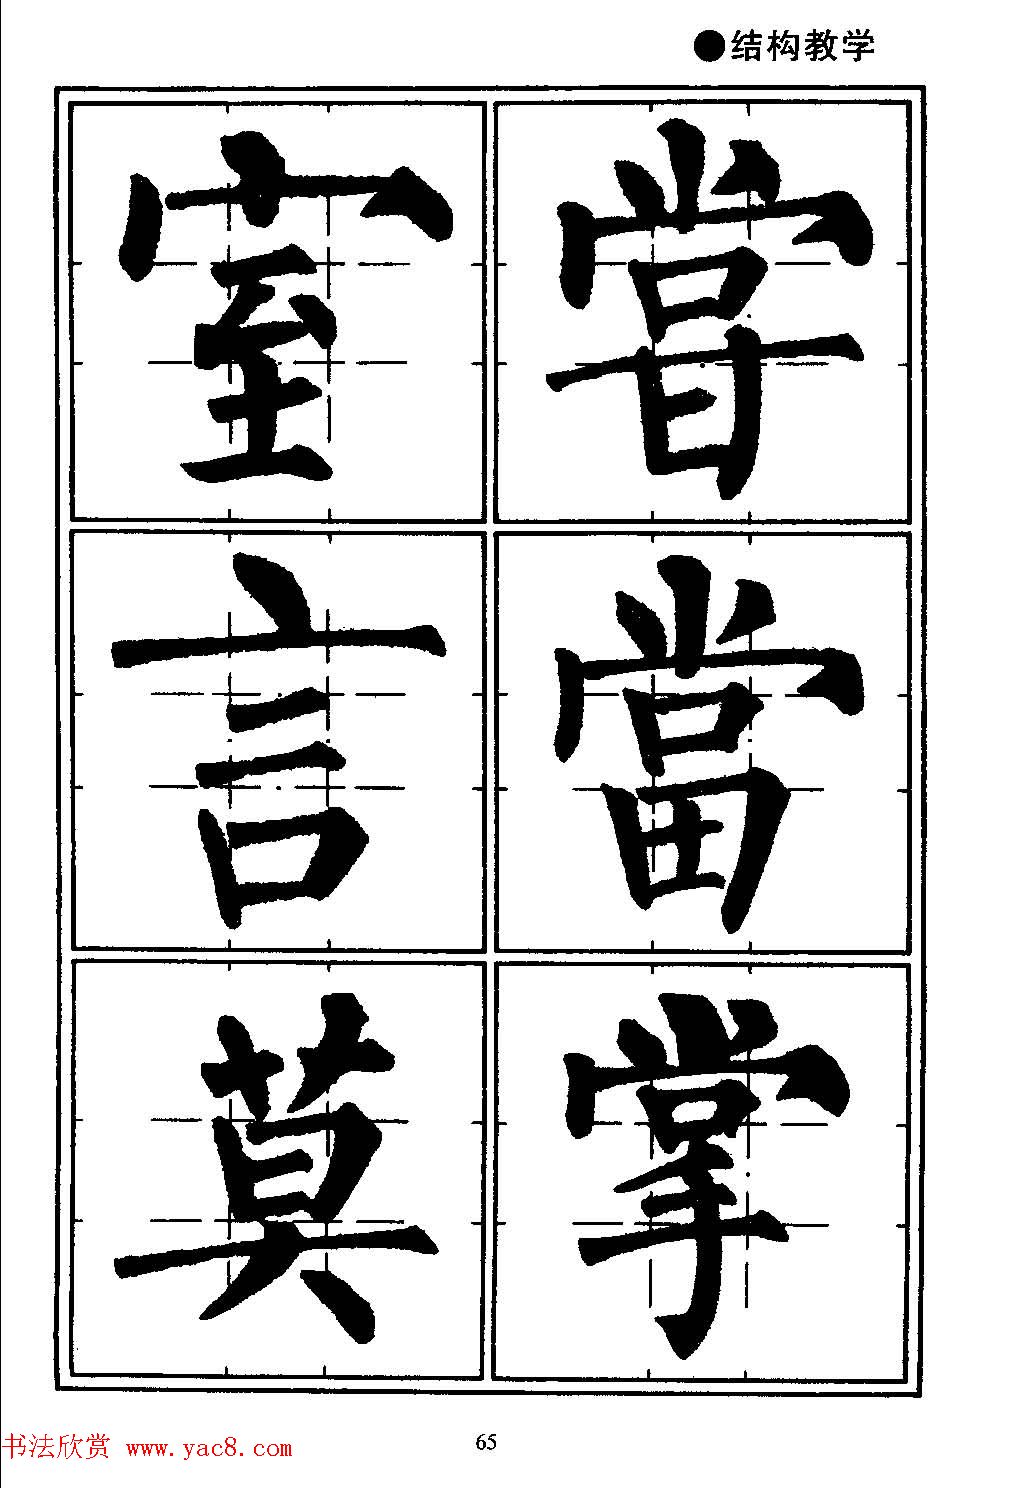 ●结构教学
甞當掌
室言莫
书法欣赏 www.yac8.com
65